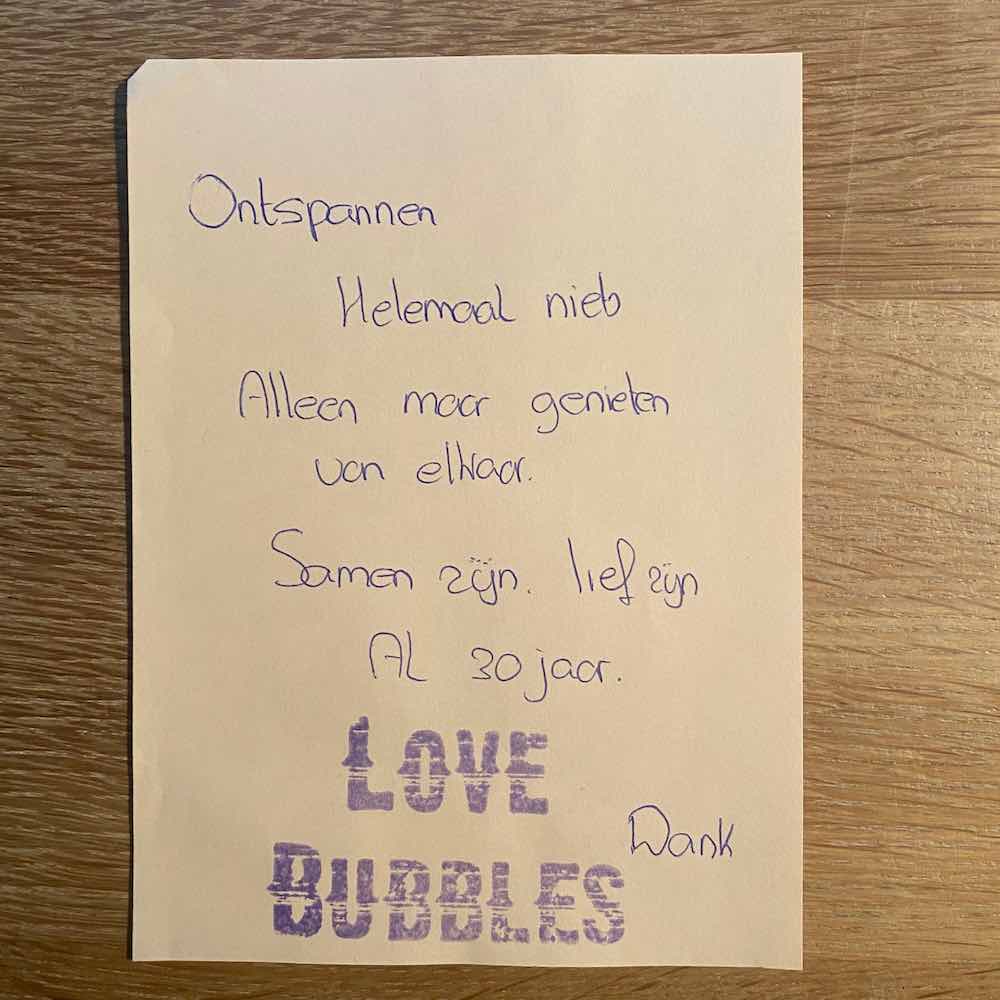 Ontspannen
Helemaal niets
Alleen maar genieten
van elkaar.
Samen zijn. lief zijn
Al 30 jaar.
LOVE
BUBBLES
Dank